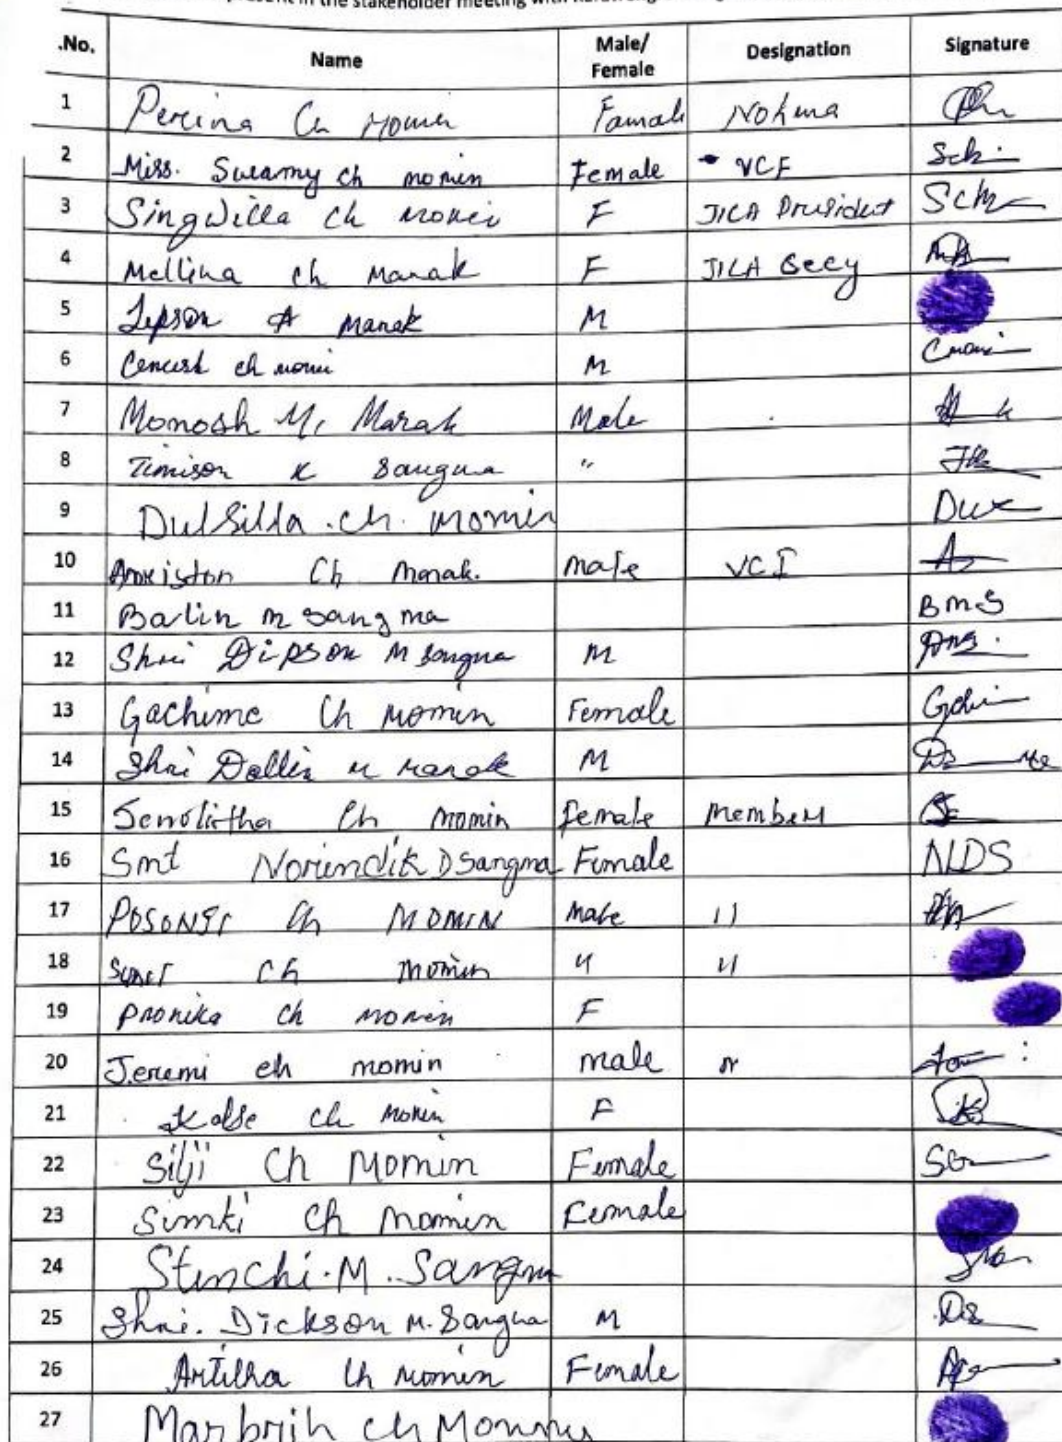 present in the stakeholder meeting with
.No. Name Male/ Female Designation Signature
1 Percina Ch Momin Famale Nokma
2 Miss. Swarmy ch momin Female VCF
3 Singwilla Ch Momin F JICA President
4 Mellina ch Marak F JICA Secy
5 Jepson A Marak M
6 ch momi M
7 Monosh M. Marak Male
8 Timison K Sangma "
9 DulSilla . Ch. Momin
10 Ch Marak. male VCF
11 Balin m sangma BmS
12 Shri Dipson M Sangma M
13 Gachime Ch Momin Female
14 Shri Dallin M Marak M
15 Senolirtha Ch Momin female member
16 Smt Norindik D Sangma Female NLDS
17 Ch MOMIN Male "
18 Ch Momin " "
19 Pronika ch momin F
20 Jeremi ch momin male "
21 Kalse ch Momin F
22 Silji Ch Momin Female
23 Simki Ch Momin Female
24 Stenchi . M . Sangma
25 Shri. Dickson M. Sangma M
26 Artilha Ch Momin Female
27 Ch Momin